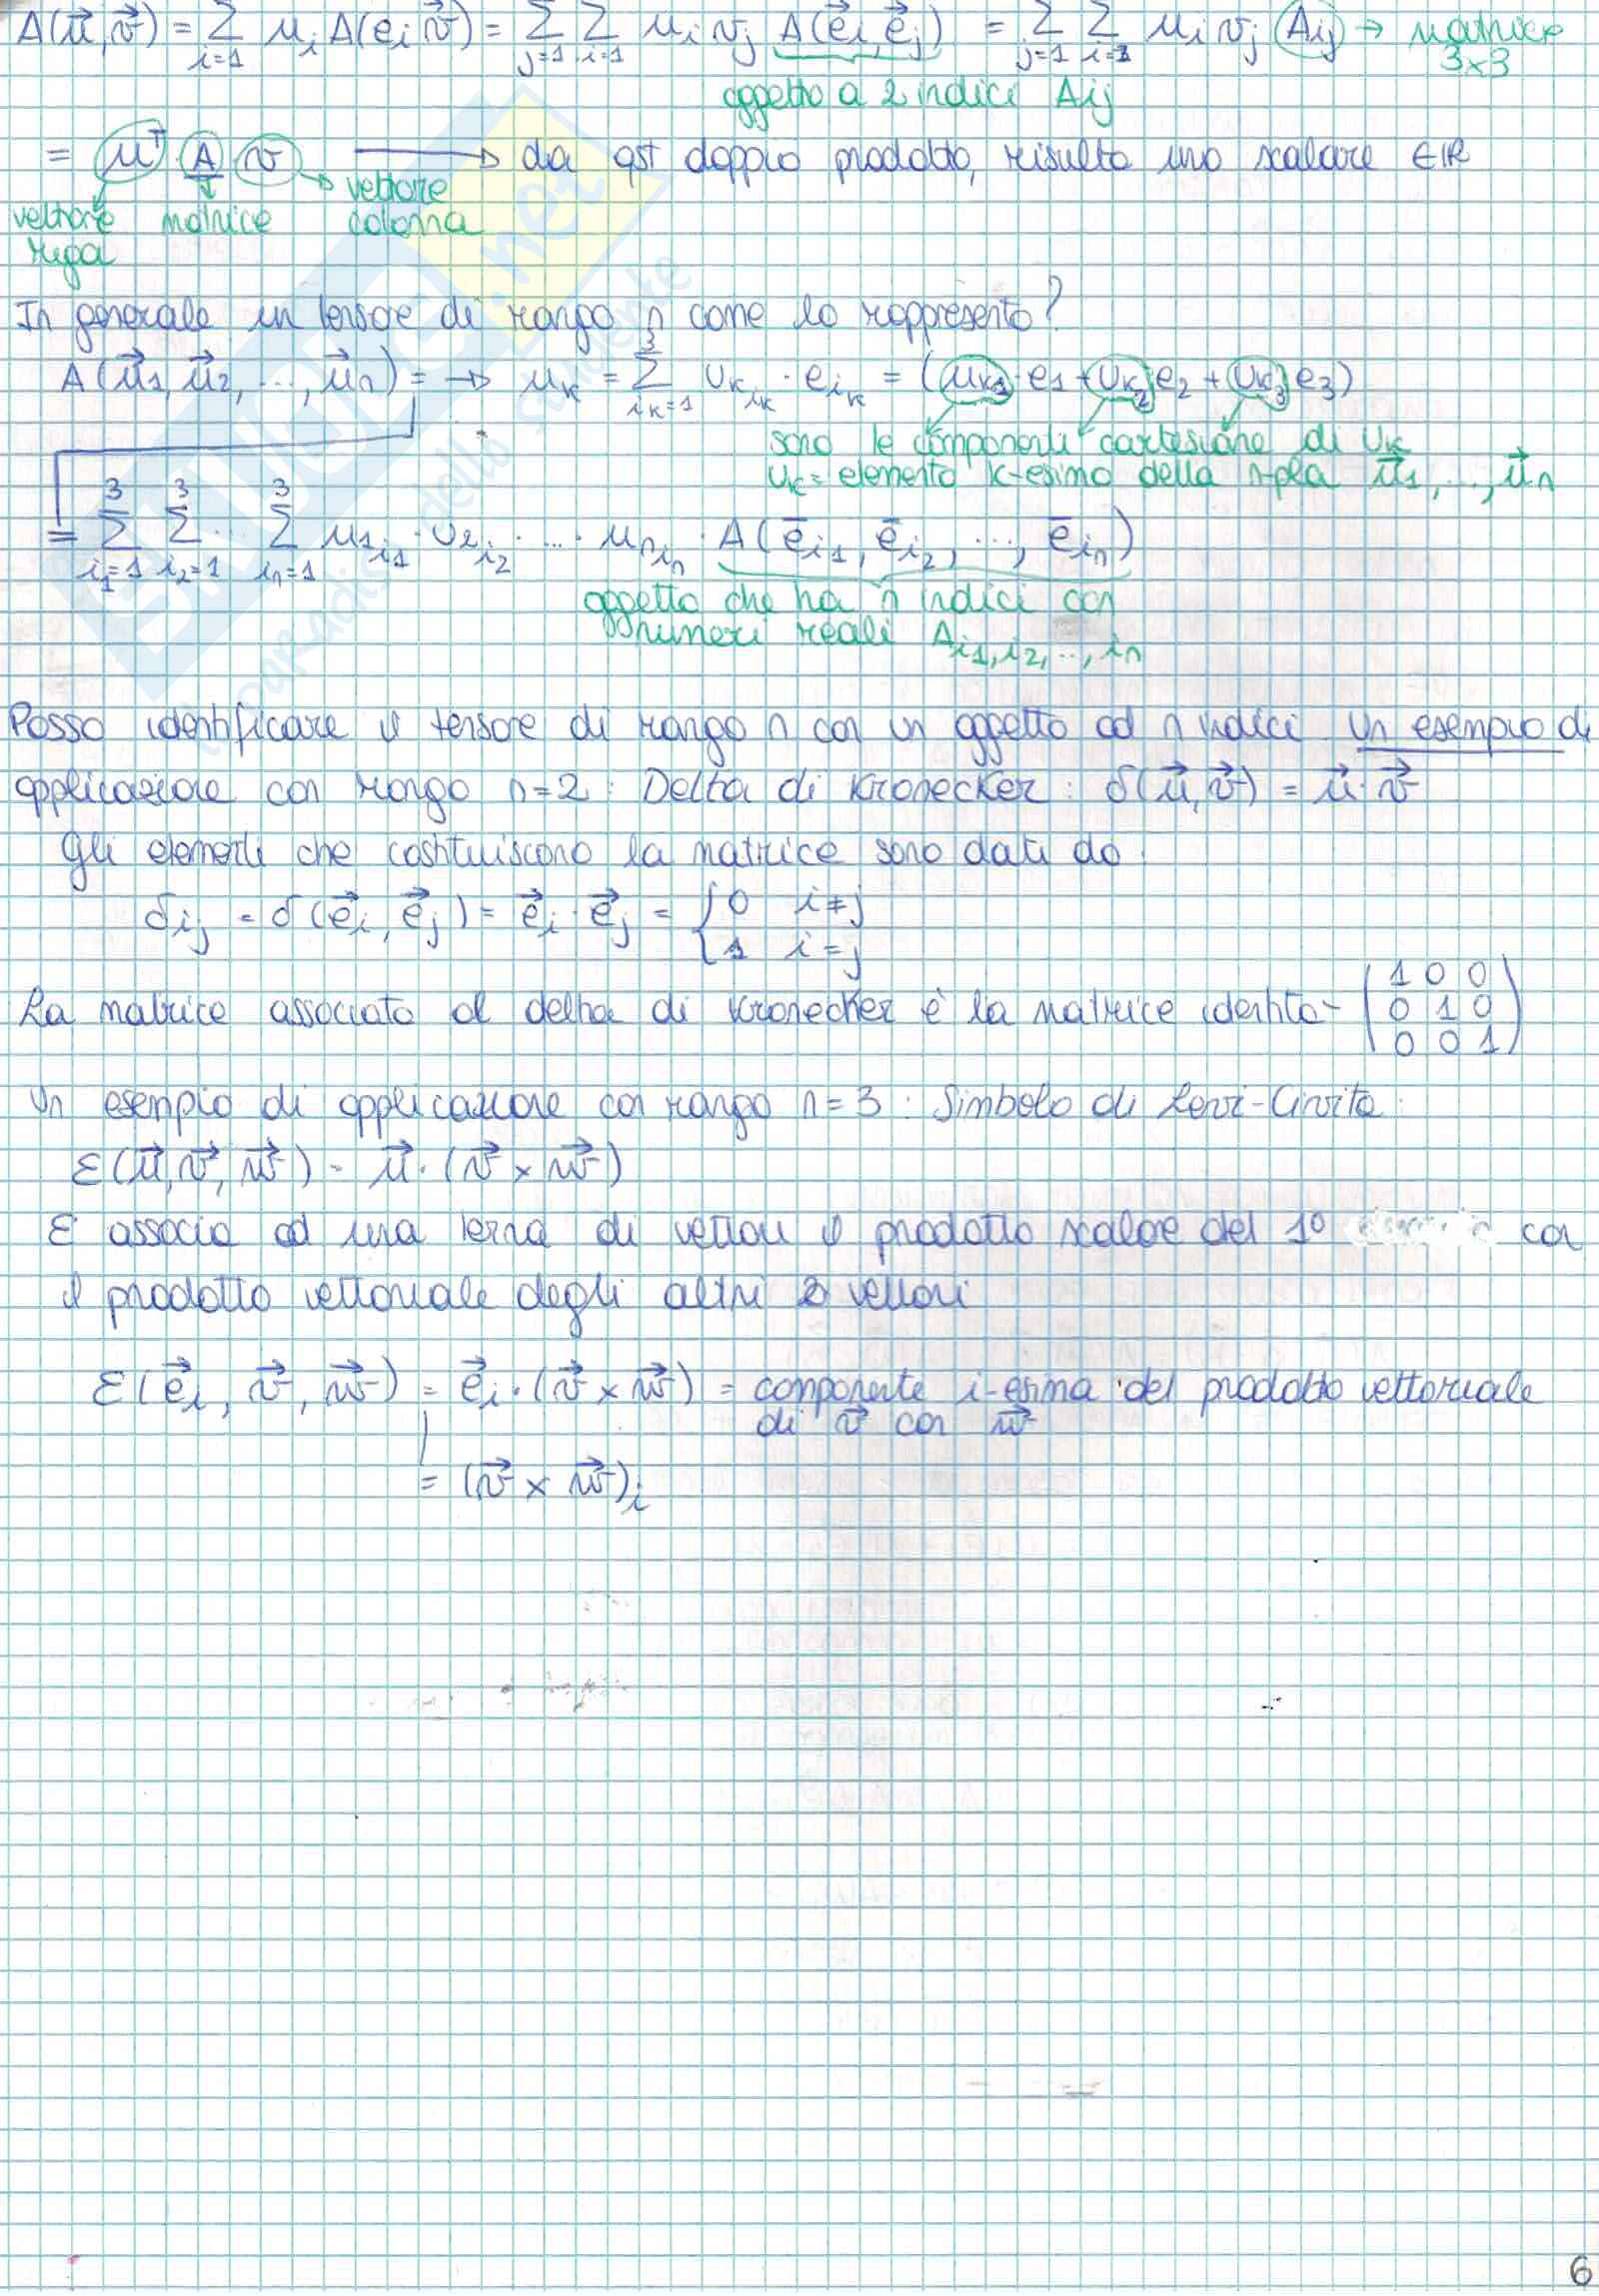 A(u⃗,v⃗) = Σ_{i=1} u_i A(e_i v⃗) = Σ_{j=1} Σ_{i=1} u_i v_j A(e⃗_i, e⃗_j) = Σ_{j=1} Σ_{i=1} u_i v_j A_ij → matrice 3x3
oggetto a 2 indici A_ij
= u^T A v → da qst doppio prodotto, risulta uno scalare ∈ ℝ
vettore riga matrice vettore colonna
In generale un tensore di rango n come lo rappresento?
A(u⃗_1, u⃗_2, ..., u⃗_n) = → u_k = Σ_{i_k=1}^3 u_{k_{i_k}} · e_{i_k} = (u_{k1} · e_1 + u_{k2} e_2 + u_{k3} e_3)
sono le componenti cartesiane di u_k
u_k = elemento k-esimo della n-pla u⃗_1, ..., u⃗_n
= Σ_{i_1=1}^3 Σ_{i_2=1}^3 ... Σ_{i_n=1}^3 u_{1_{i_1}} · u_{2_{i_2}} · ... · u_{n_{i_n}} · A(e̅_{i1}, e̅_{i2}, ..., e̅_{in})
oggetto che ha n indici con
numeri reali A_{i1,i2,..,in}
Posso identificare il tensore di rango n con un oggetto ad n indici. Un esempio di
applicazione con rango n=2 : Delta di Kronecker : δ(u⃗,v⃗) = u⃗·v⃗
Gli elementi che costituiscono la matrice sono dati da:
δ_ij = δ(e⃗_i, e⃗_j) = e⃗_i · e⃗_j = { 0 i≠j
1 i=j
La matrice associata al delta di Kronecker è la matrice identità (1 0 0
0 1 0
0 0 1)
Un esempio di applicazione con rango n=3 : Simbolo di Levi-Civita:
ε(u⃗,v⃗,w⃗) = u⃗ · (v⃗ × w⃗)
ε associa ad una terna di vettori il prodotto scalare del 1° con
il prodotto vettoriale degli altri 2 vettori
ε(e⃗_i, v⃗, w⃗) = e⃗_i · (v⃗ × w⃗) = componente i-esima del prodotto vettoriale
di v⃗ con w⃗
= (v⃗ × w⃗)_i
6